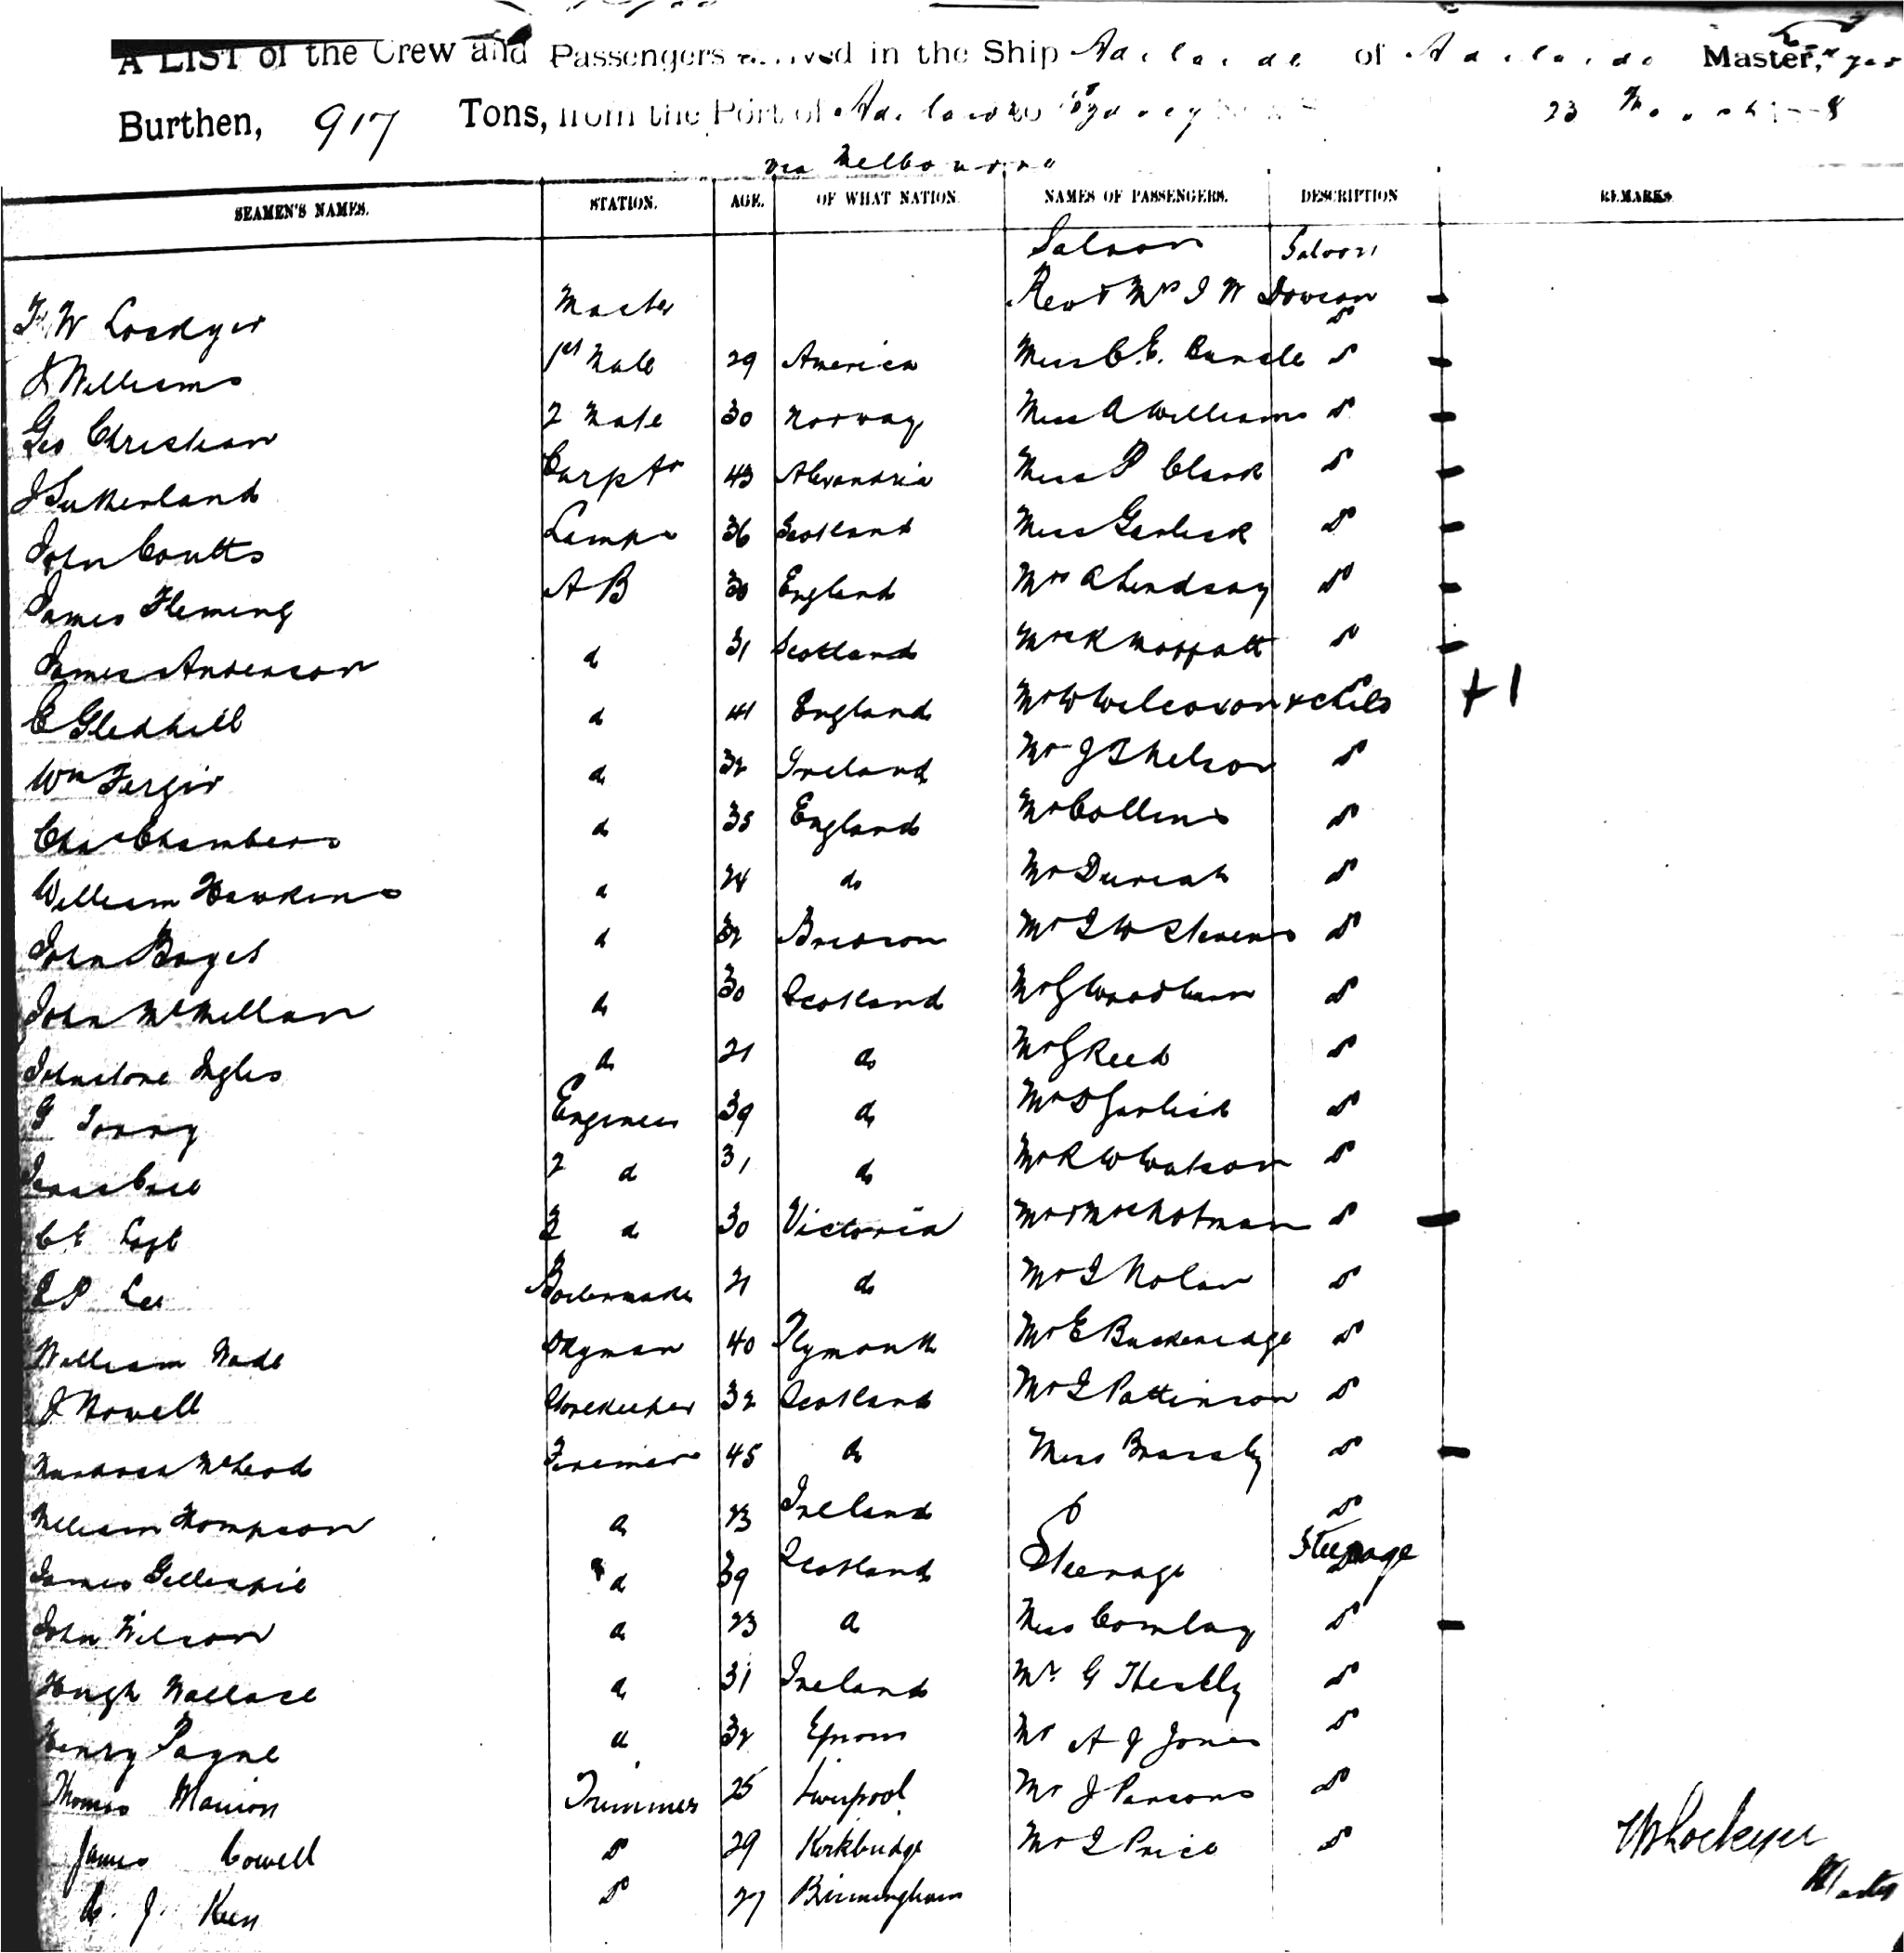 A LIST of the Crew and Passengers arrived in the Ship Adelaide of Adelaide Master,
Burthen, 917 Tons, from the Port of Adelaide to Sydney 23
via Melbourne
SEAMEN'S NAMES. STATION. AGE. OF WHAT NATION. NAMES OF PASSENGERS. DESCRIPTION REMARKS
Saloon Saloon
W Lockyer Master Revd & Mrs J W do
J Williams 1st Mate 29 America Miss C. E. do
Geo Christian 2 Mate 30 Norway Miss A Williams do
J Sutherland Carptr 43 Alexandria Miss P Clark do
John Coutts Lamps 36 Scotland Miss Garlick do
James Fleming AB 30 England Mrs A Lindsay do
James Anderson d 31 Scotland Mrs R Moffatt do
C Gledhill d 41 England Mr W Wilcoxon & child do +1
Wm d 32 Ireland Mr J T Nelson do
Chas Chambers d 35 England Mr Collins do
William Hawkins d 24 do Mr do
John d 32 Mr J W Stevens do
John McMillan d 30 Scotland Mr G Woodburn do
Johnstone Ingles d 21 do Mr G Reed do
G Engineer 39 do Mr D Garlick do
2 d 31 do Mr R W Watson do
3 d 30 Victoria Mr & Mrs do
Lee Boilermaker 21 do Mr J Nolan do
William Wade Dkyman 40 Plymouth Mr E Buckeridge do
J Nowell Storekeeper 32 Scotland Mr J Pattinson do
McLeod Fireman 45 do Miss do
William Thompson d 23 Ireland do
James Gillespie d 39 Scotland Steerage Steerage
John Wilson d 23 d Miss do
Hugh Wallace d 31 Ireland Mr G do
Henry Payne d 32 Epsom Mr A J Jones do
Thomas Manion Trimmer 25 Liverpool Mr J Parsons do
James Cowell do 29 Kirkbridge Mr J Price do
C. J. Keen do 27 Birmingham
W Lockyer
Master